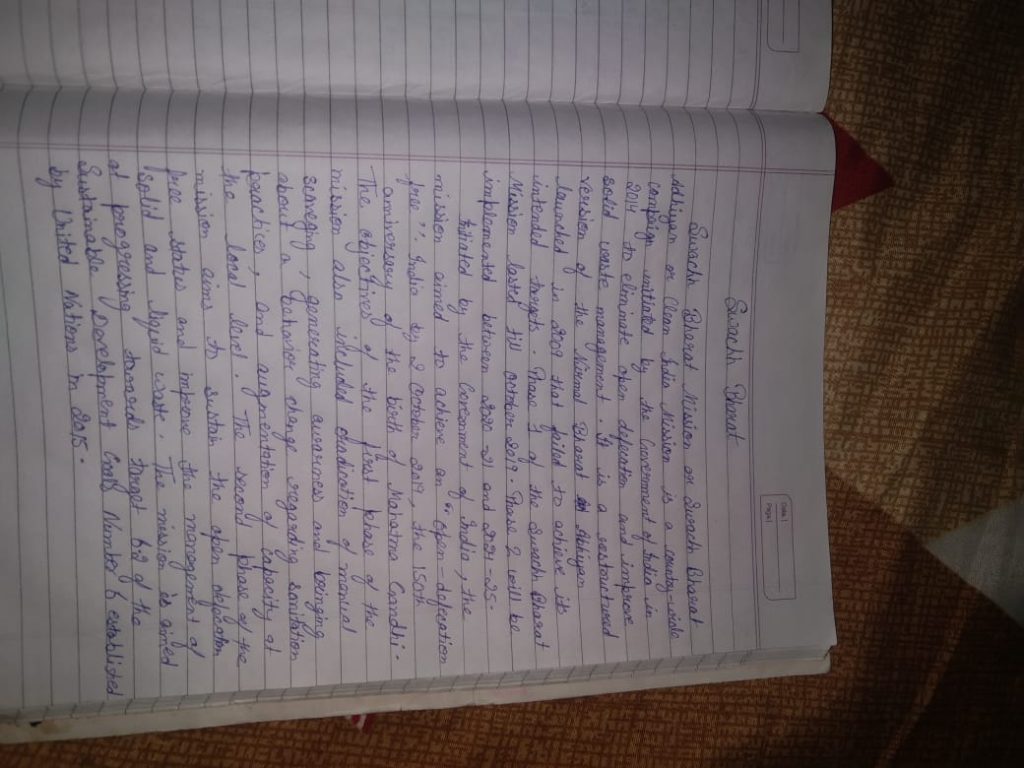 Swachh Bharat
Swachh Bharat Mission or Swachh Bharat
Abhiyan or Clean India Mission is a country-wide
campaign initiated by the Government of India in
2014 to eliminate open defecation and improve
solid waste management. It is a restructured
revision of the Nirmal Bharat Abhiyan
launched in 2009 that failed to achieve its
intended targets. Phase 1 of the Swachh Bharat
Mission lasted till october 2019. Phase 2 will be
implemented between 2020-21 and 2024-25.
Initiated by the Government of India, the
mission aimed to achieve an "open-defecation
free". India by 2 October 2019, the 150th
anniversary of the birth of Mahatma Gandhi.
The objectives of the first phase of the
mission also included eradication of manual
scavenging, generating awareness and bringing
about a behavior change regarding sanitation
practices, and augmentation of capacity at
the local level. The second phase of the
mission aims to sustain the open defecation
free status and improve the management of
solid and liquid waste. The mission is aimed
at progressing towards target 6.2 of the
Sustainable Development Number 6 established
by United Nations in 2015.